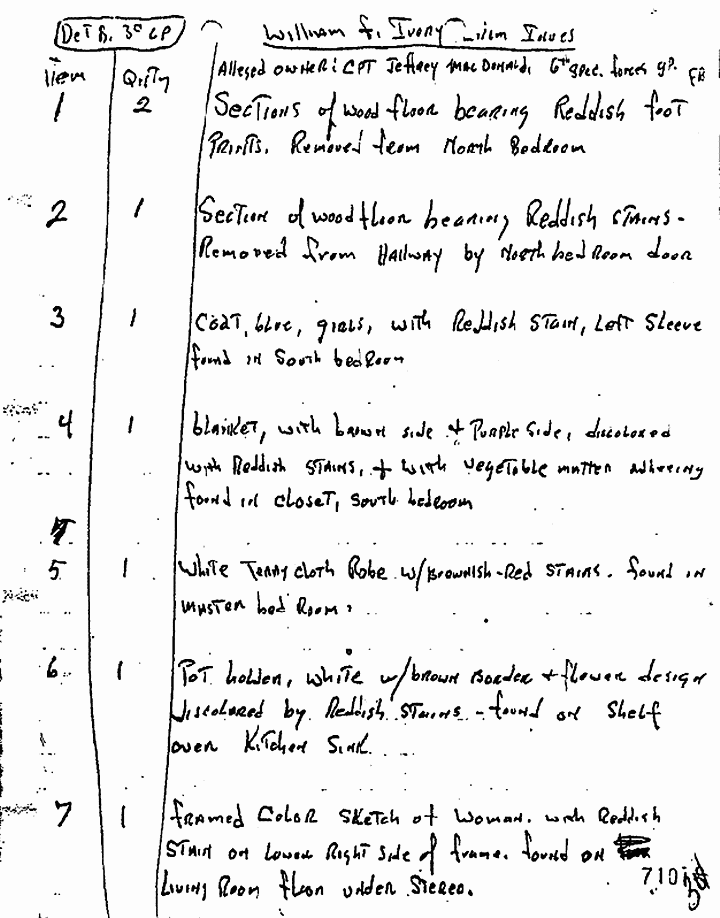 Det B, 3d CP
William F. Ivory
Item Qntty Alleged owner: CPT Jeffrey MacDonald, 6th Spec. forces gp.
1 2 Sections of wood floor bearing Reddish foot
Prints. Removed from North Bedroom
2 1 Section of wood floor bearing Reddish stains -
Removed from Hallway by North bedRoom door
3 1 Coat, blue, girls, with Reddish Stain, Left Sleeve
found in South bedroom
4 1 blanket, with brown side + Purple Side, discolored
with Reddish stains, + with vegetable matter adhering
found in closet, South bedroom
5 1 White Terrycloth Robe w/Brownish-Red stains. found in
master bed Room.
6 1 Pot holder, white w/brown Border + flower design
discolored by Reddish stains - found on Shelf
over Kitchen Sink.
7 1 framed Color Sketch of Woman. with Reddish
Stain on Lower Right side of frame. found on
Living Room floor under Stereo.
710